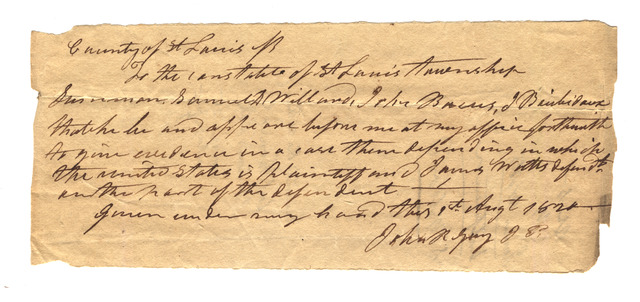 County of St Louis ss
To the constable of St Louis township
Summon Samuel D Willard, John Bacus, J
that he be and appear before me at my office forthwith
to give evidence in a case then depending in which
the united States is plaintiff and James Watts defendt.
on the part of the defendent
Given under my hand this 1st Augt 1820
John H Guy J P